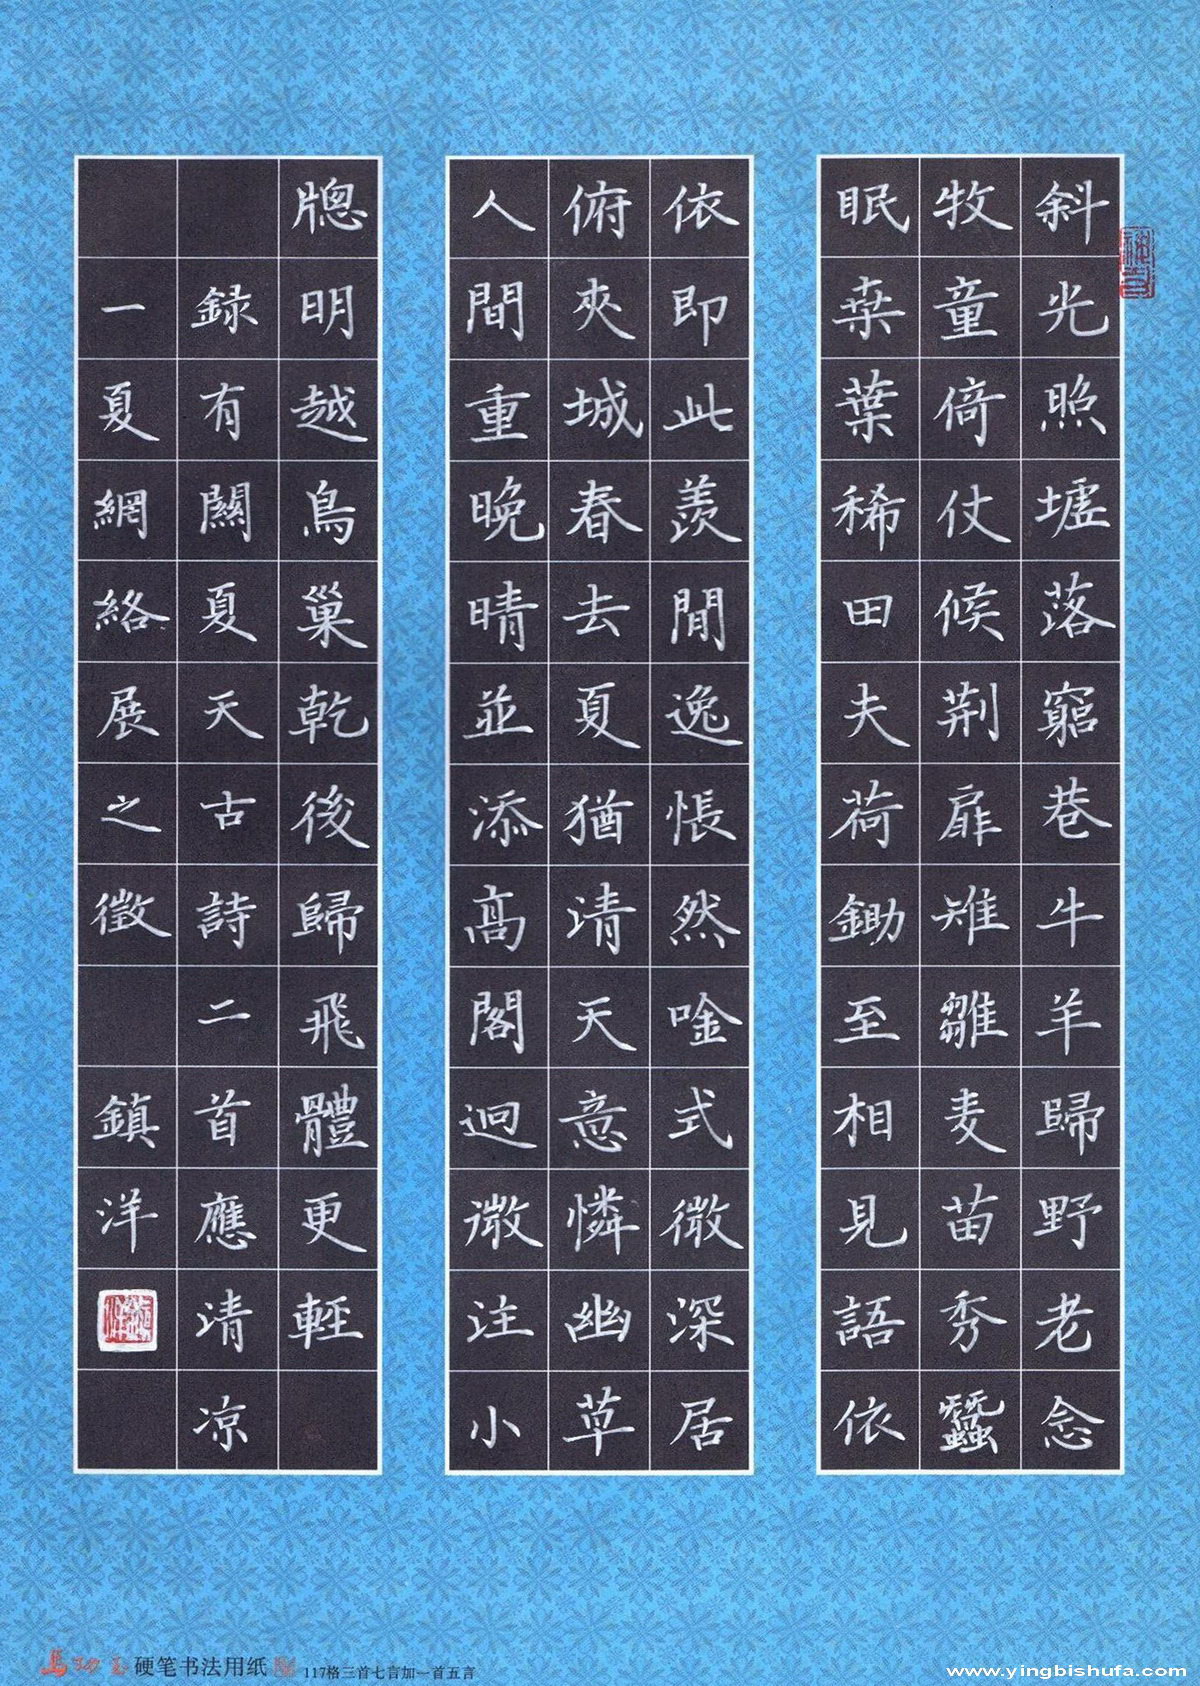 斜光照墟落窮巷牛羊歸野老念
牧童倚仗候荆扉雉雛麦苗秀蠶
眠桒葉稀田夫荷鋤至相見語依
依即此羨閒逸悵然唫式微深居
俯夾城春去夏猶清天意憐幽草
人間重晚晴並添高閣迥微注小
牕明越鳥巢乾後歸飛體更輕
録有關夏天古詩二首應清凉
一夏網絡展之徵 鎮洋
硬笔书法用纸
117格三首七言加一首五言
www.yingbishufa.com